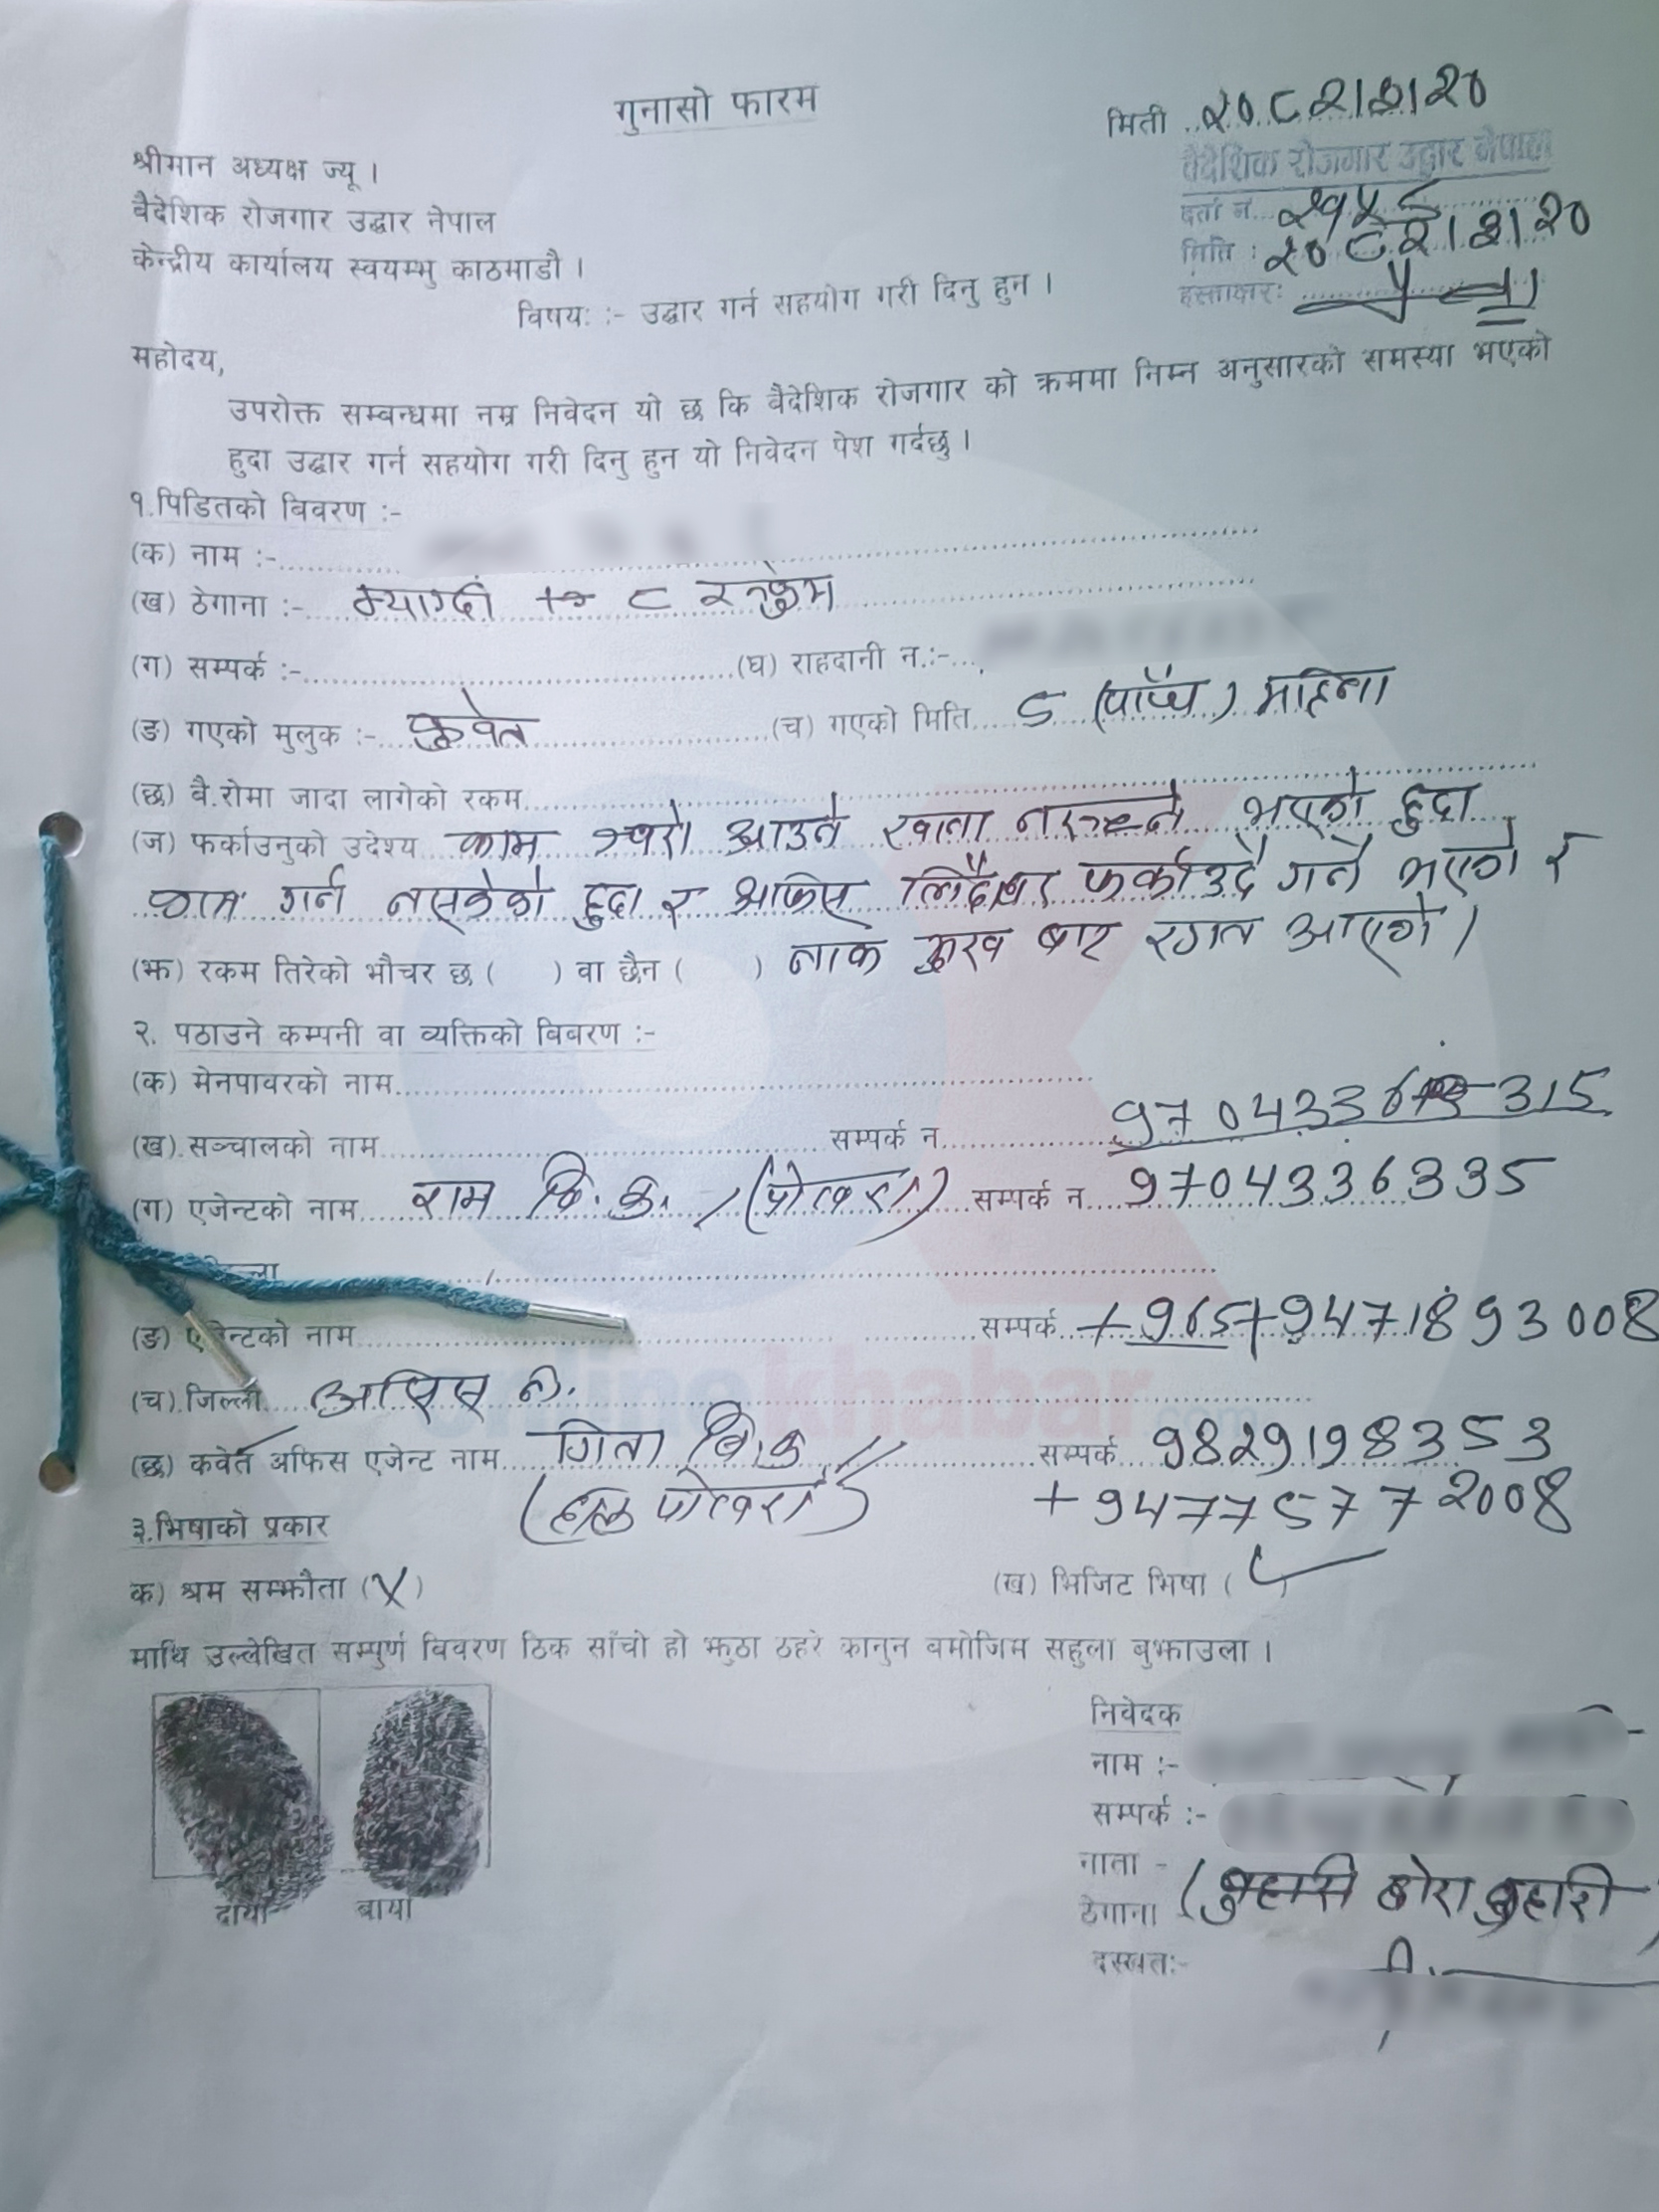 गुनासो फारम
मिती २०८२।३।२०
श्रीमान अध्यक्ष ज्यू ।
वैदेशिक रोजगार उद्धार नेपाल
वैदेशिक रोजगार उद्धार नेपाल
दर्ता नं
केन्द्रीय कार्यालय स्वयम्भु काठमाडौ ।
मिति : २०८२।३।२०
हस्ताक्षर:
विषय: :- उद्धार गर्न सहयोग गरी दिनु हुन ।
महोदय,
उपरोक्त सम्बन्धमा नम्र निवेदन यो छ कि वैदेशिक रोजगार को क्रममा निम्न अनुसारको समस्या भएको
हुदा उद्धार गर्न सहयोग गरी दिनु हुन यो निवेदन पेश गर्दछु ।
१.पिडितको विवरण :-
(क) नाम :-
(ख) ठेगाना :- म्याग्दी ८
(ग) सम्पर्क :- (घ) राहदानी न.:-
(ङ) गएको मुलुक :- कुवेत (च) गएको मिति ५ (पाँच) महिना
(छ) वै.रोमा जादा लागेको रकम
(ज) फर्काउनुको उदेश्य काम आउने खाना भएको हुदा
काम गर्न नसकेको हुदा र अफिस फर्काउदै गर्ने भएको र
(झ) रकम तिरेको भौचर छ ( ) वा छैन ( ) नाक मुख बाट रगत आएको ।
२. पठाउने कम्पनी वा व्यक्तिको विवरण :-
(क) मेनपावरको नाम
(ख) सञ्चालको नाम सम्पर्क न 970433 315
(ग) एजेन्टको नाम राम बि.क. (पोखरा) सम्पर्क न 9704336335
(ङ) एजेन्टको नाम सम्पर्क +965+9471893008
(च) जिल्ला अफिस नं.
(छ) कवेत अफिस एजेन्ट नाम गिता बि.क सम्पर्क 9829198353
(हाल पोखरा) +94775772008
३.भिषाको प्रकार
क) श्रम सम्झौता (X) (ख) भिजिट भिषा (✓)
माथि उल्लेखित सम्पुर्ण विवरण ठिक साँचो हो झुठा ठहरे कानुन बमोजिम सहुला बुझाउला ।
निवेदक
नाम :-
सम्पर्क :-
नाता -
ठेगाना (बुहारी छोरा बुहारी)
दस्खत:-
दाया बाया
onlinekhabar.com